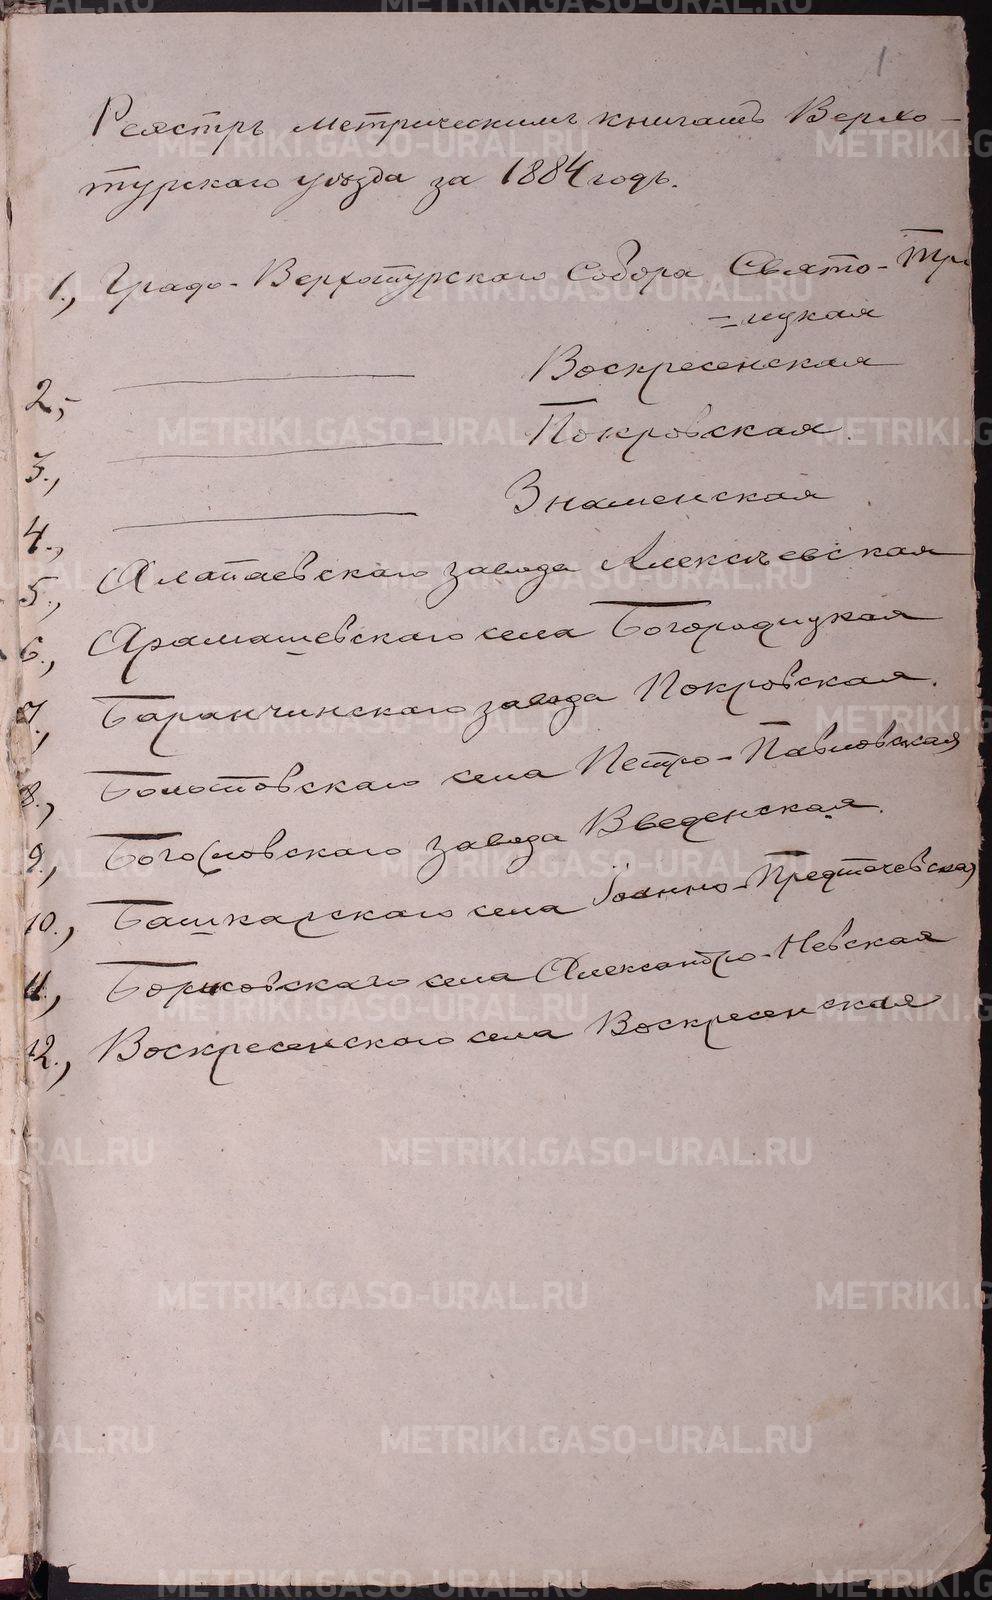 1
Реэстръ метрическимъ книгамъ Верхо-
турскаго уѣзда за 1884 годъ.
1., Градо-Верхотурскаго Собора Свято-Тро
=ицкая
2., Воскресенская
3., Покровская
4., Знаменская
5., Алапаевскаго завода Алексѣевская
6., Арамашевскаго села Богородицкая
7., Баранчинскаго завода Покровская.
8., Болотовскаго села Петро-Павловская
9., Богословскаго завода Введенская.
10., Башкарскаго села Іоанно-Предтечевская
11., села Александро-Невская
12., Воскресенскаго села Воскресенская